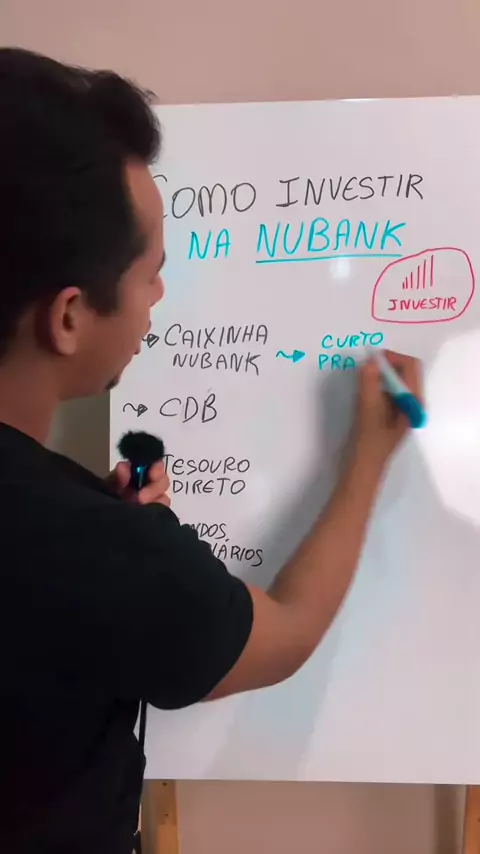 COMO INVESTIR
NA NUBANK
INVESTIR
CAIXINHA
NUBANK
CURTO
PRA
CDB
TESOURO
DIRETO